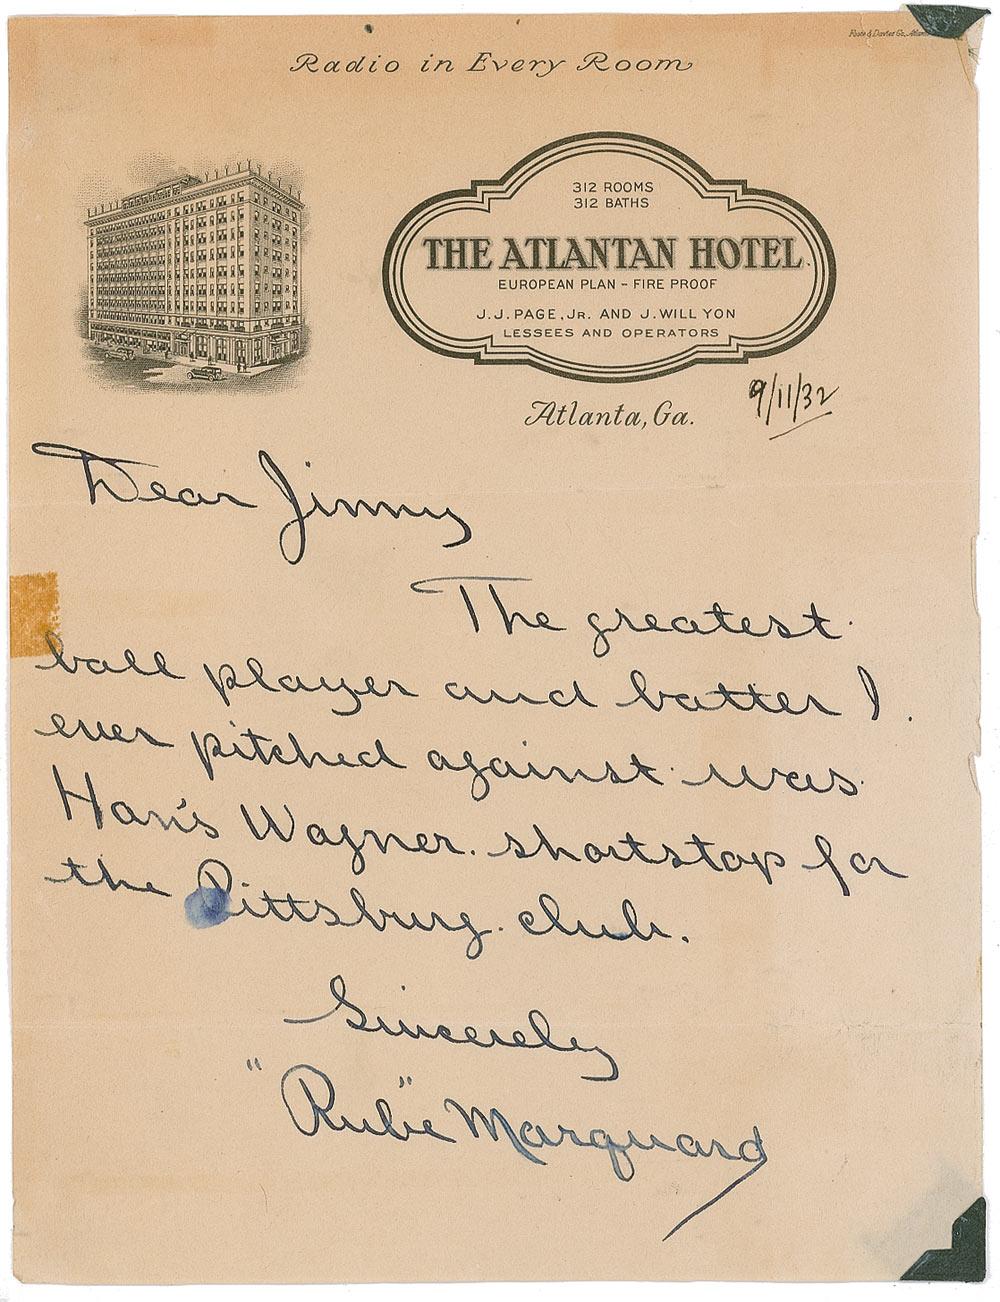 Foote & Davies Co., Atlanta
Radio in Every Room
312 ROOMS
312 BATHS
THE ATLANTAN HOTEL
EUROPEAN PLAN - FIRE PROOF
J. J. PAGE, JR. AND J. WILL YON
LESSEES AND OPERATORS
Atlanta, Ga.
9/11/32
Dear Jimmy
The greatest
ball player and batter I
ever pitched against was
Han's Wagner. shortstop for
the Pittsburg. club.
Sincerely
"Rube" Marquard